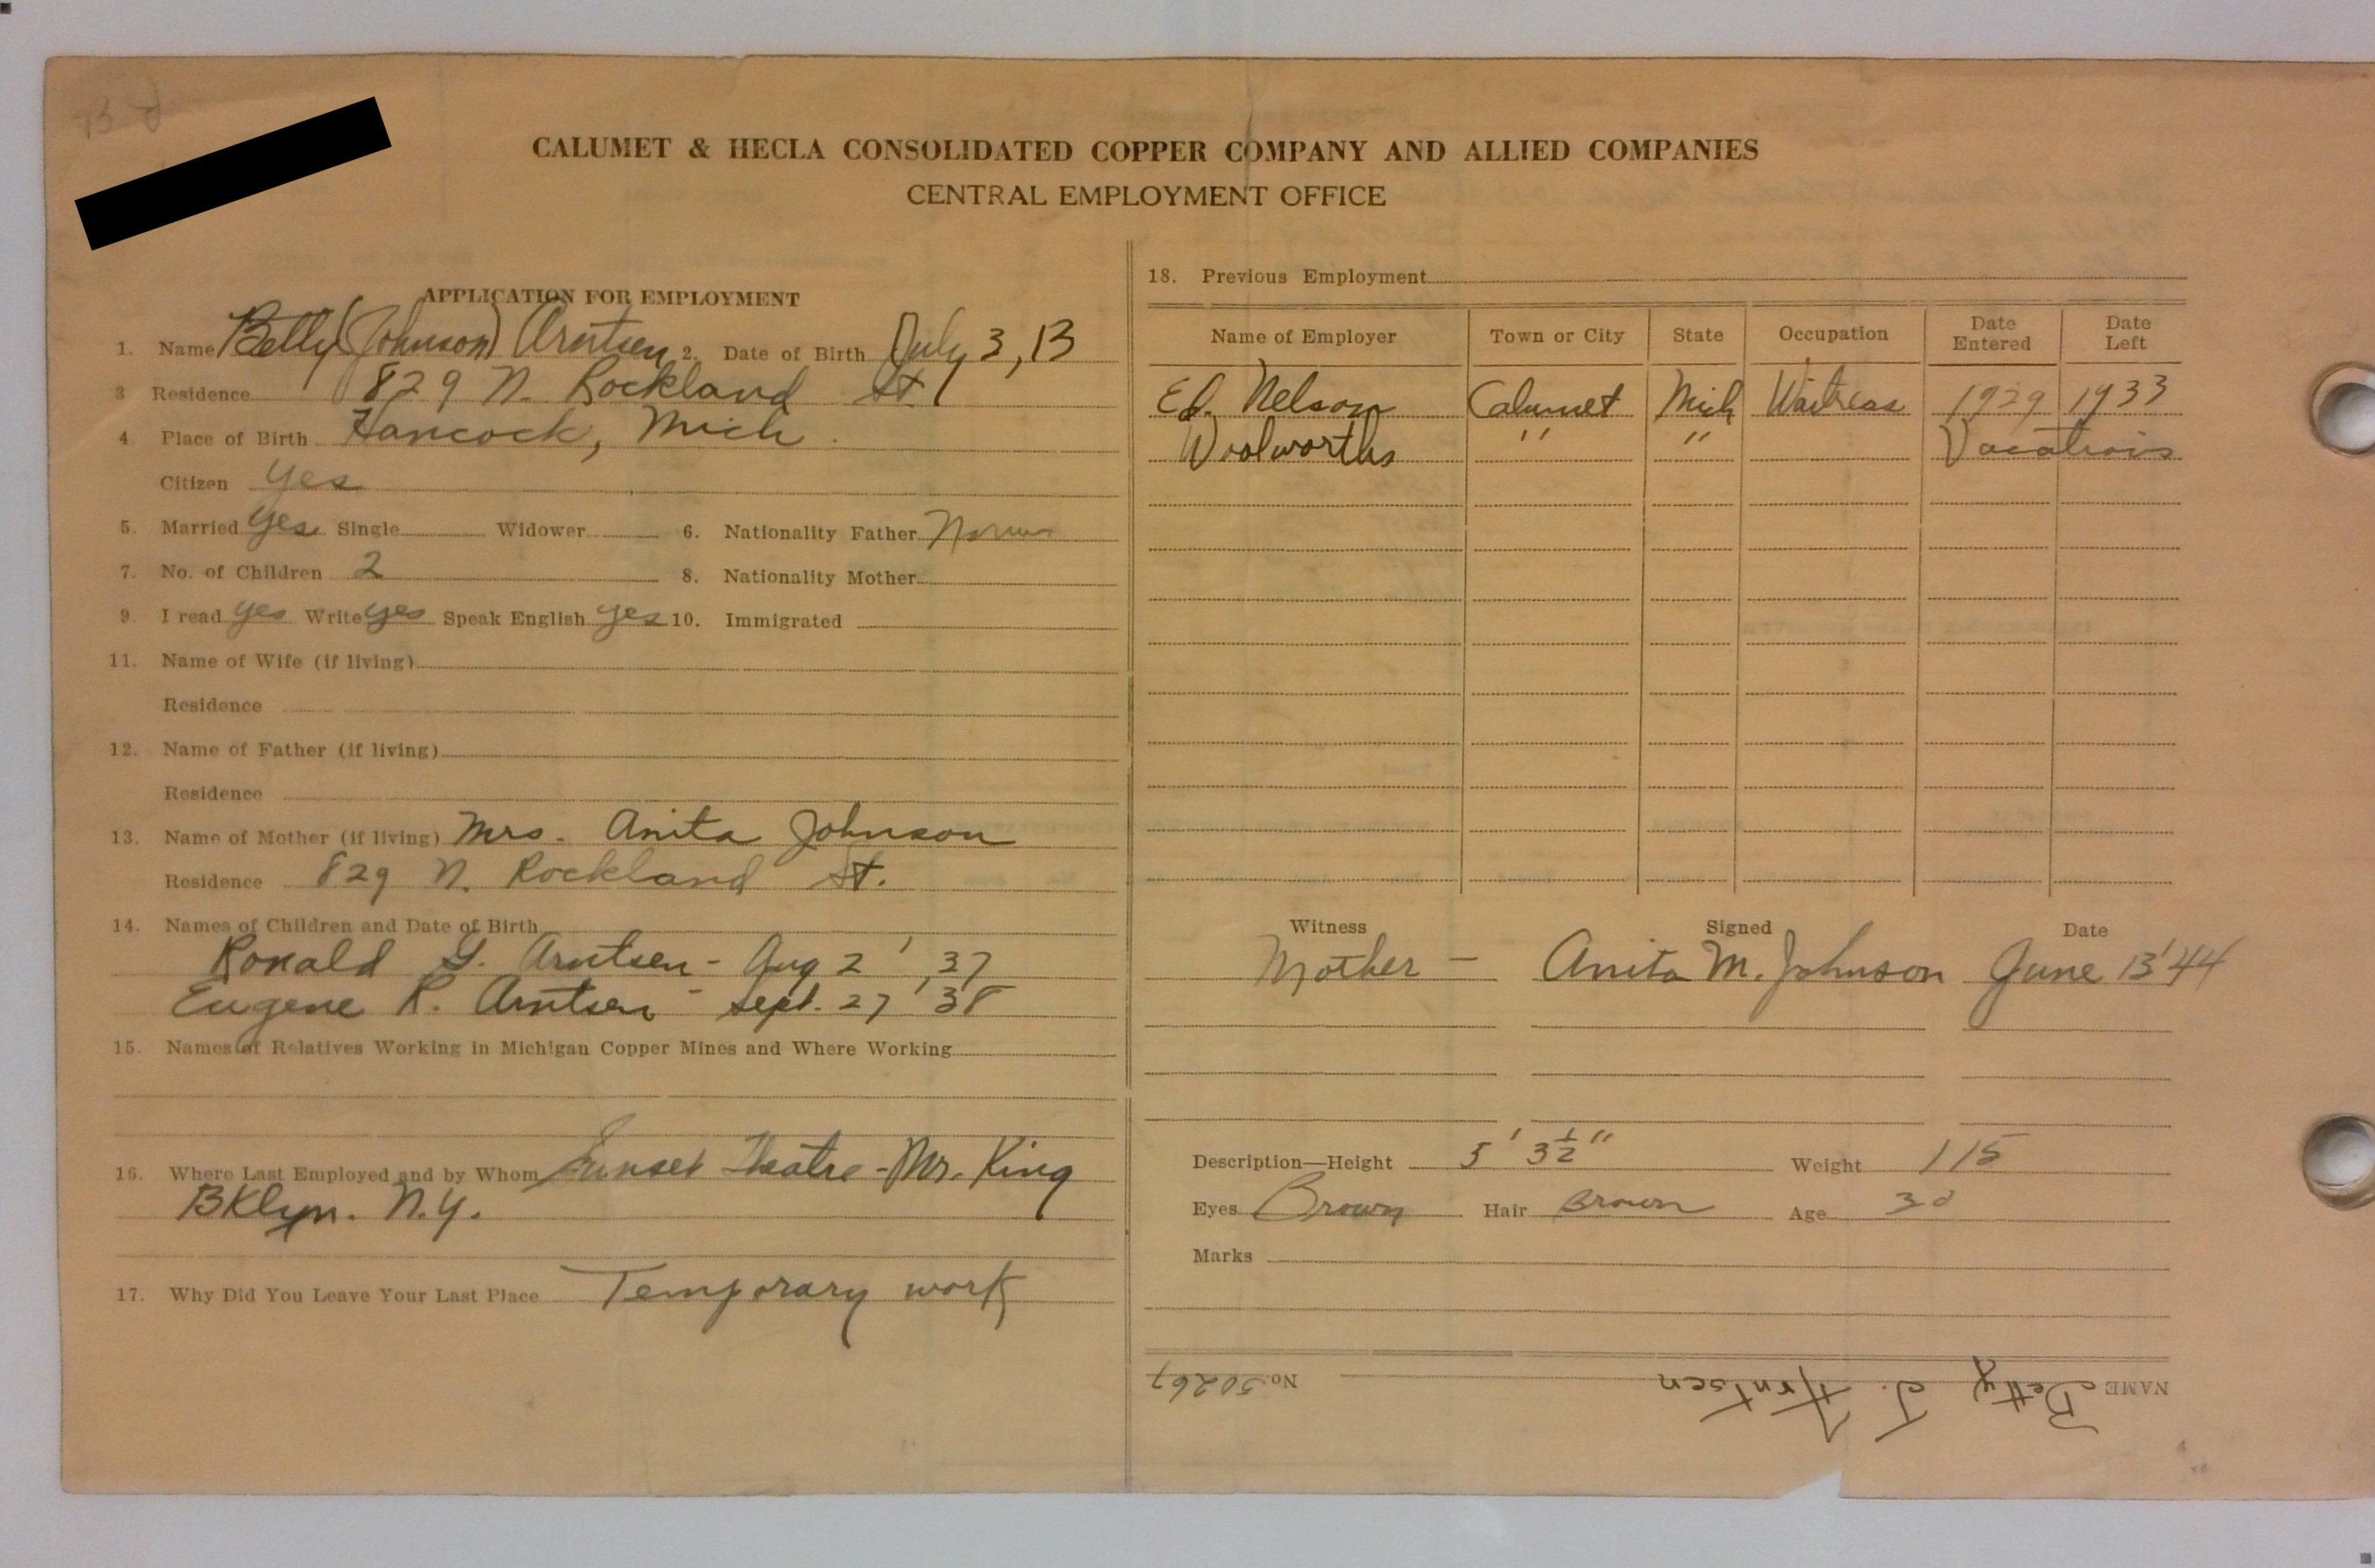 CALUMET & HECLA CONSOLIDATED COPPER COMPANY AND ALLIED COMPANIES
CENTRAL EMPLOYMENT OFFICE
APPLICATION FOR EMPLOYMENT
1. Name Betty (Johnson) Arntsen 2. Date of Birth July 3, 13
3 Residence 829 N. Rockland St.
4. Place of Birth Hancock, Mich.
Citizen Yes
5. Married Yes Single Widower 6. Nationality Father
7. No. of Children 2 8. Nationality Mother
9. I read Yes Write Yes Speak English Yes 10. Immigrated
11. Name of Wife (if living)
Residence
12. Name of Father (if living)
Residence
13. Name of Mother (if living) Mrs. Anita Johnson
Residence 829 N. Rockland St.
14. Names of Children and Date of Birth
Ronald G. Arntsen - Aug 2 ' 37
Eugene R. Arntsen - Sept. 27 ' 38
15. Names of Relatives Working in Michigan Copper Mines and Where Working
16. Where Last Employed and by Whom Sunset Theatre - Mr. King
BKlyn. N.Y.
17. Why Did You Leave Your Last Place Temporary work
18. Previous Employment
Name of Employer Town or City State Occupation Date Entered Date Left
Ed. Nelson Calumet Mich Waitress 1929 1933
Woolworths " " Vacations
Witness Signed Date
Mother - Anita M. Johnson June 13 '44
Description—Height 5' 3½" Weight 115
Eyes Brown Hair Brown Age 30
Marks
NAME Betty J. Arntsen No. 50267